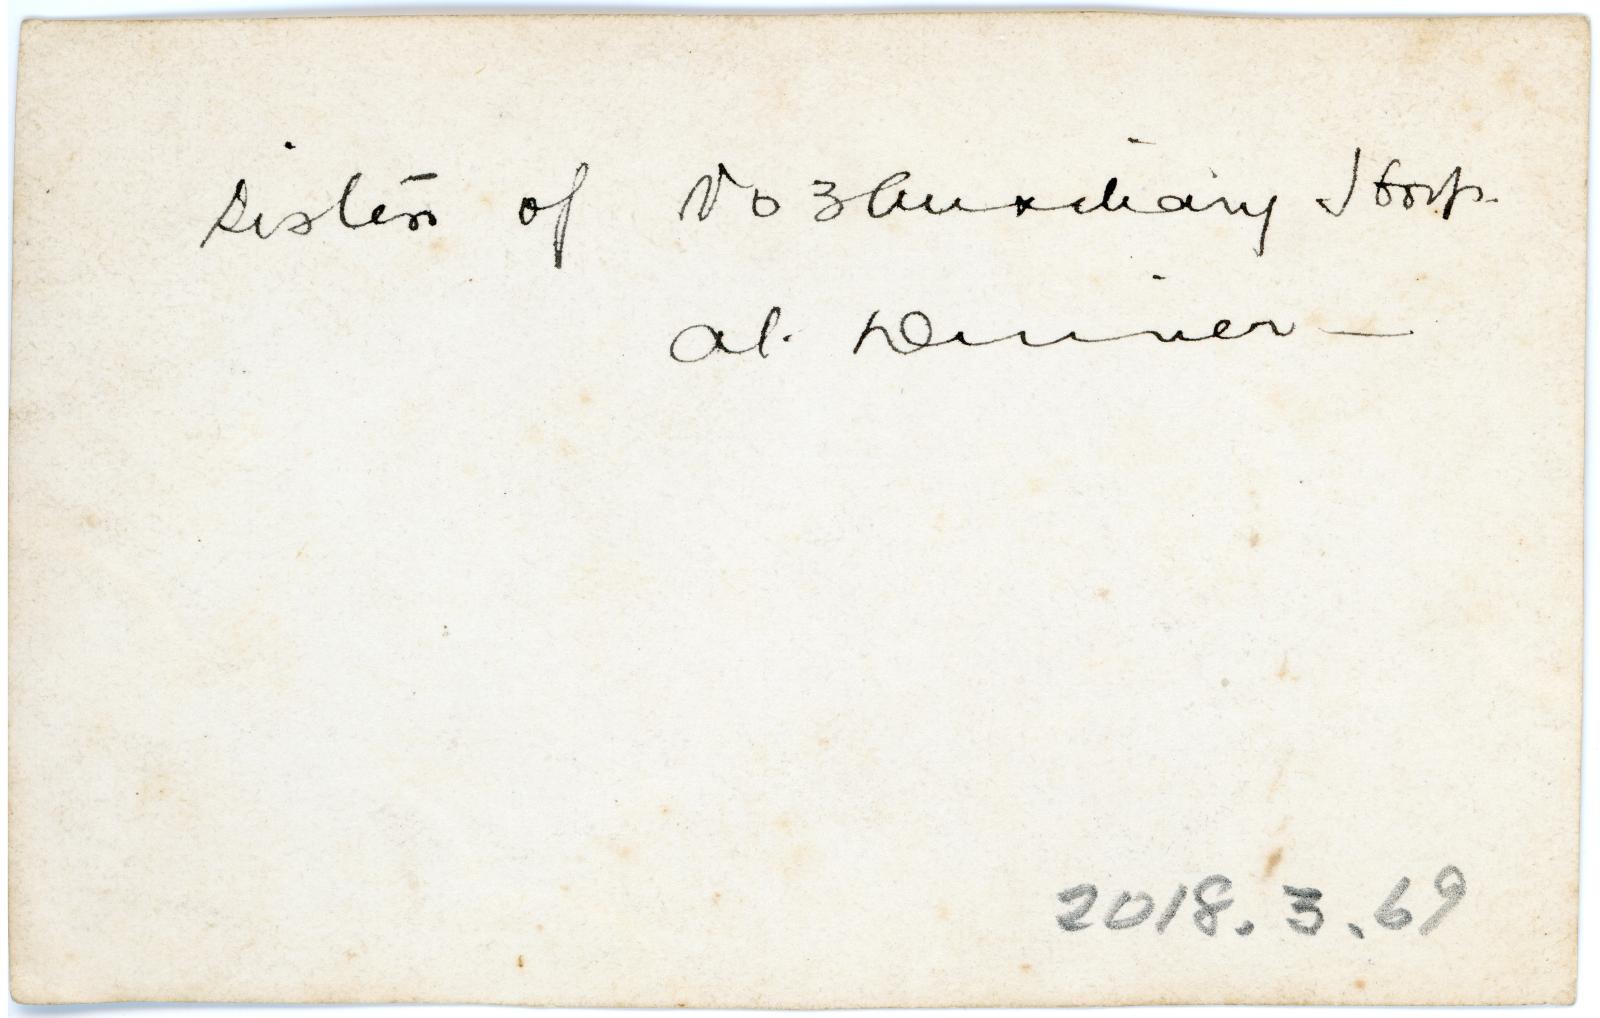 Sisters of No 3 Auxiliary Hosp.
at Dinner —
2018.3.69